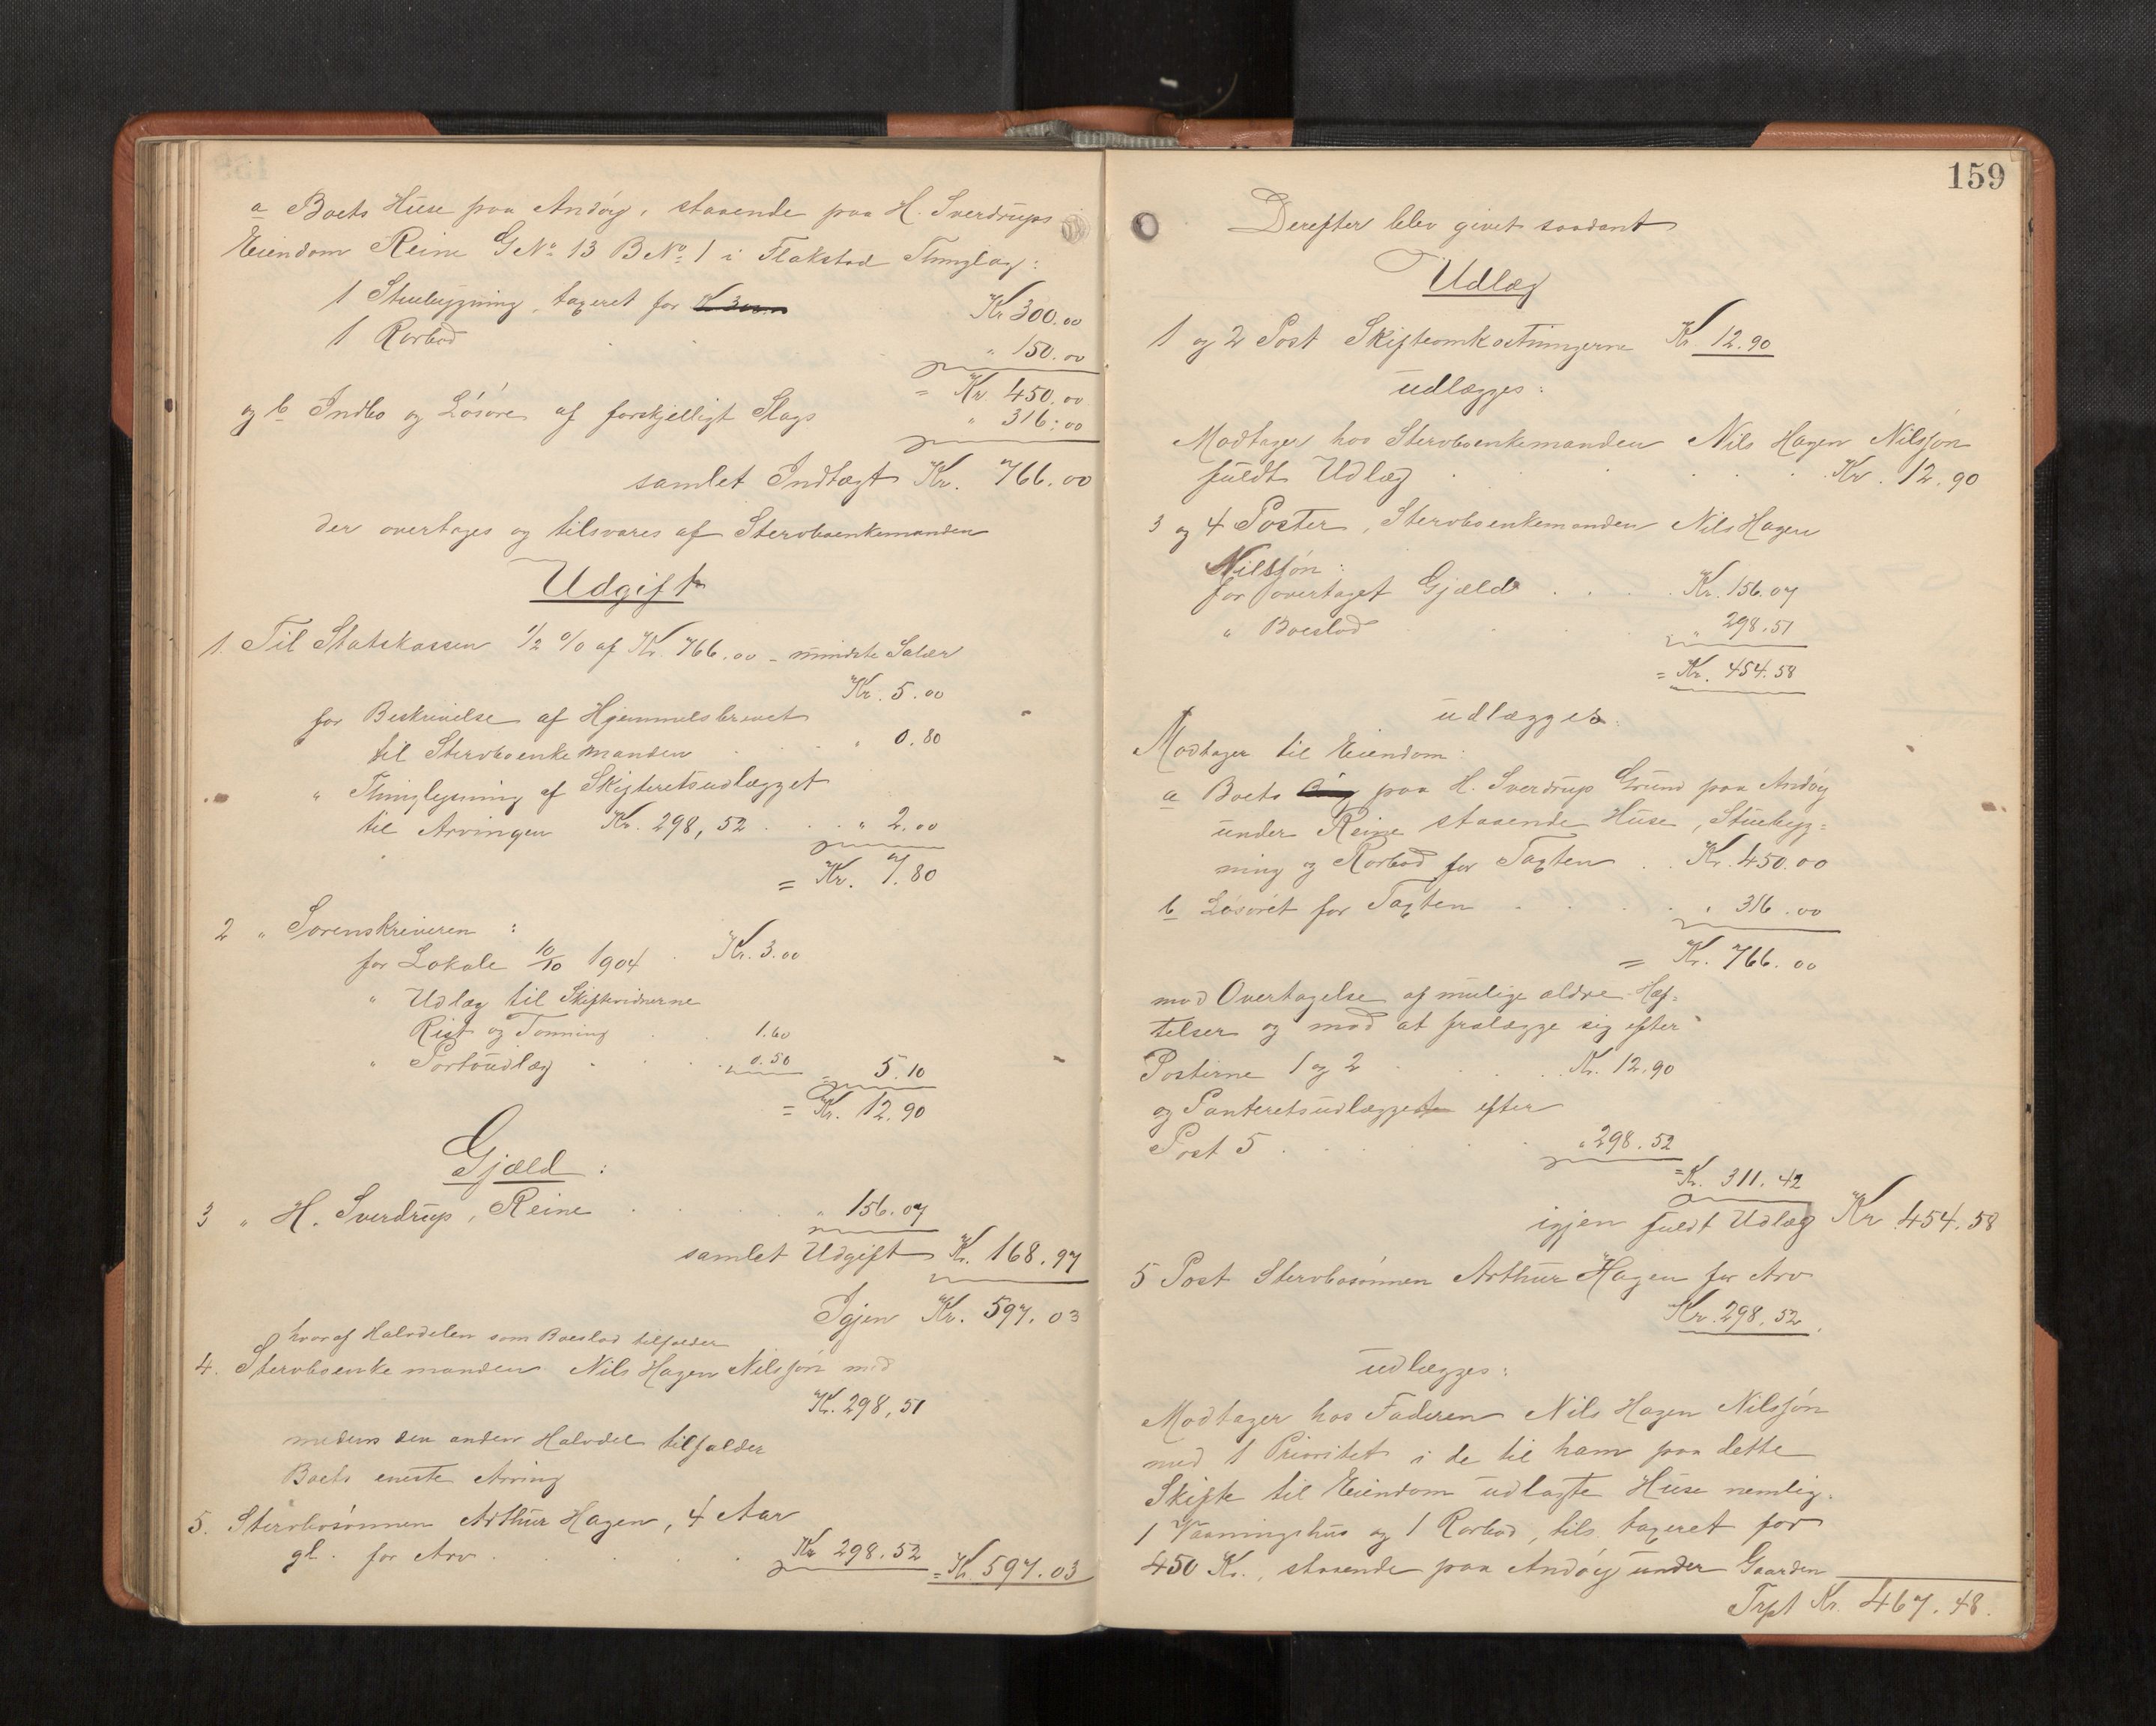 a Boets Huse paa Andøy, staaende paa H. Sverdrups
Eiendom Reine GNo 13 BNo 1 i Flakstad Thinglag:
1 Stuebygning, taxeret for Kr 300.00
1 Rorbod . . " 150.00
= Kr. 450.00
og b Indbo og Løsøre af forskjelligt Slags " 316.00
samlet Indtægt Kr. 766.00
der overtages og tilsvares af Stervboenkemanden
Udgift
1. Til Statskassen 1/2 % af Kr. 766.00 - mindste Salær
Kr. 5.00
for Beskrivelse af Hjemmelsbrevet
til Stervboenkemanden . . . " 0.80
" Thinglysning af Skifteretsudlægget
til Arvingen Kr. 298,52 . . . " 2.00
= Kr. 7.80
2 " Sorenskriveren :
for Lokale 10/10 1904 . Kr. 3.00
" Udlæg til Skiftevidnerne
Rist og Tonning . . 1.60
" Portoudlæg . . . 0.50 " 5.10
= Kr. 12.90
Gjæld :
3 " H. Sverdrup, Reine . . . . " 156.07
samlet Udgift Kr. 168.97
Igjen Kr. 597.03
hvoraf Halvdelen som Boeslod tilfalder
4. Stervboenkemanden Nils Hagen Nilssøn med
Kr. 298,51
medens den anden Halvdel tilfalder
Boets eneste Arving
5. Stervbosønnen Arthur Hagen, 4 Aar
gl. for Arv . . . . Kr 298.52 = Kr. 597.03
159
Derefter blev givet saadant
Udlæg
1 og 2 Post Skifteomkostningerne Kr 12.90
udlægges:
Modtager hos Stervboenkemanden Nils Hagen Nilssøn
fuldt Udlæg . . . . . Kr. 12.90
3 og 4 Poster, Stervboenkemanden Nils Hagen
Nilssøn:
for overtaget Gjæld . . . Kr. 156.07
" Boeslod . . . " 298.51
= Kr. 454.58
udlægges:
Modtager til Eiendom:
a Boets paa H. Sverdrup Grund paa Andøy
under Reine staaende Huse, Stuebyg=
ning og Rorbod for Taxten . . Kr. 450.00
b Løsøret for Taxten . . . . " 316.00
= Kr. 766.00
mod Overtagelse af mulige ældre Hæf=
telser og mod at fralægge sig efter
Posterne 1 og 2 . . . . Kr. 12.90
og Panteretsudlægget efter
Post 5 . . . . " 298.52
= Kr. 311.42
igjen fuldt Udlæg Kr. 454.58
5 Post Stervbosønnen Arthur Hagen for Arv
Kr. 298.52.
udlægges:
Modtager hos Faderen Nils Hagen Nilssøn
med 1 Prioritet i de til ham paa dette
Skifte til Eiendom udlagte Huse nemlig.
1 Vaaningshus og 1 Rorbod, tils. taxeret for
450 Kr., staaende paa Andøy under Gaarden
Trpt Kr. 467.48.